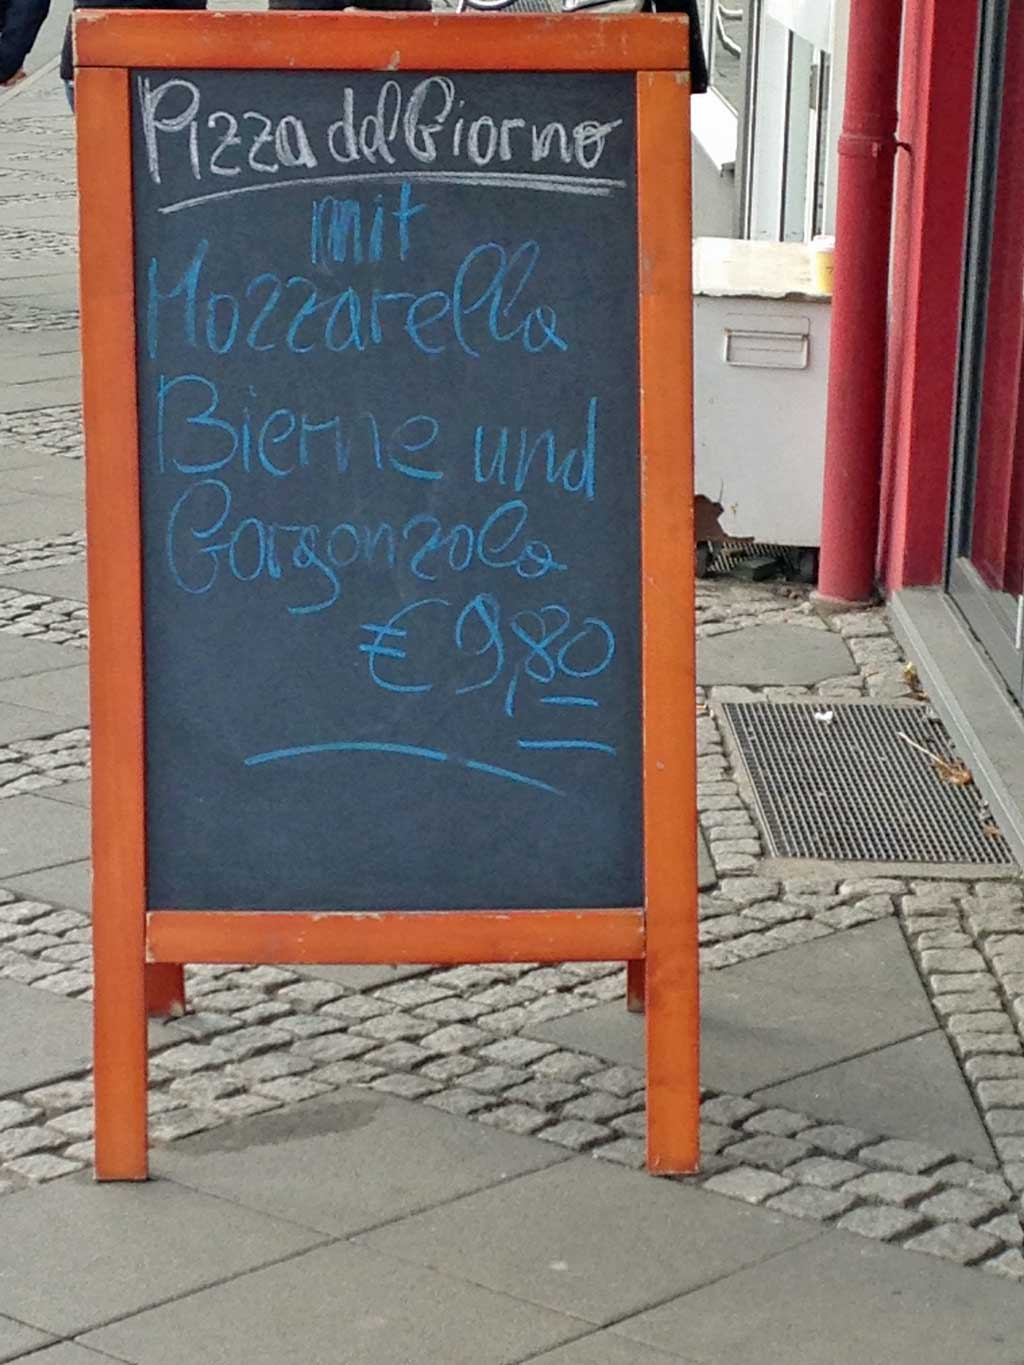 Pizza del Giorno
mit
Mozzarella
Bierne und
Gorgonzola
€ 9,80